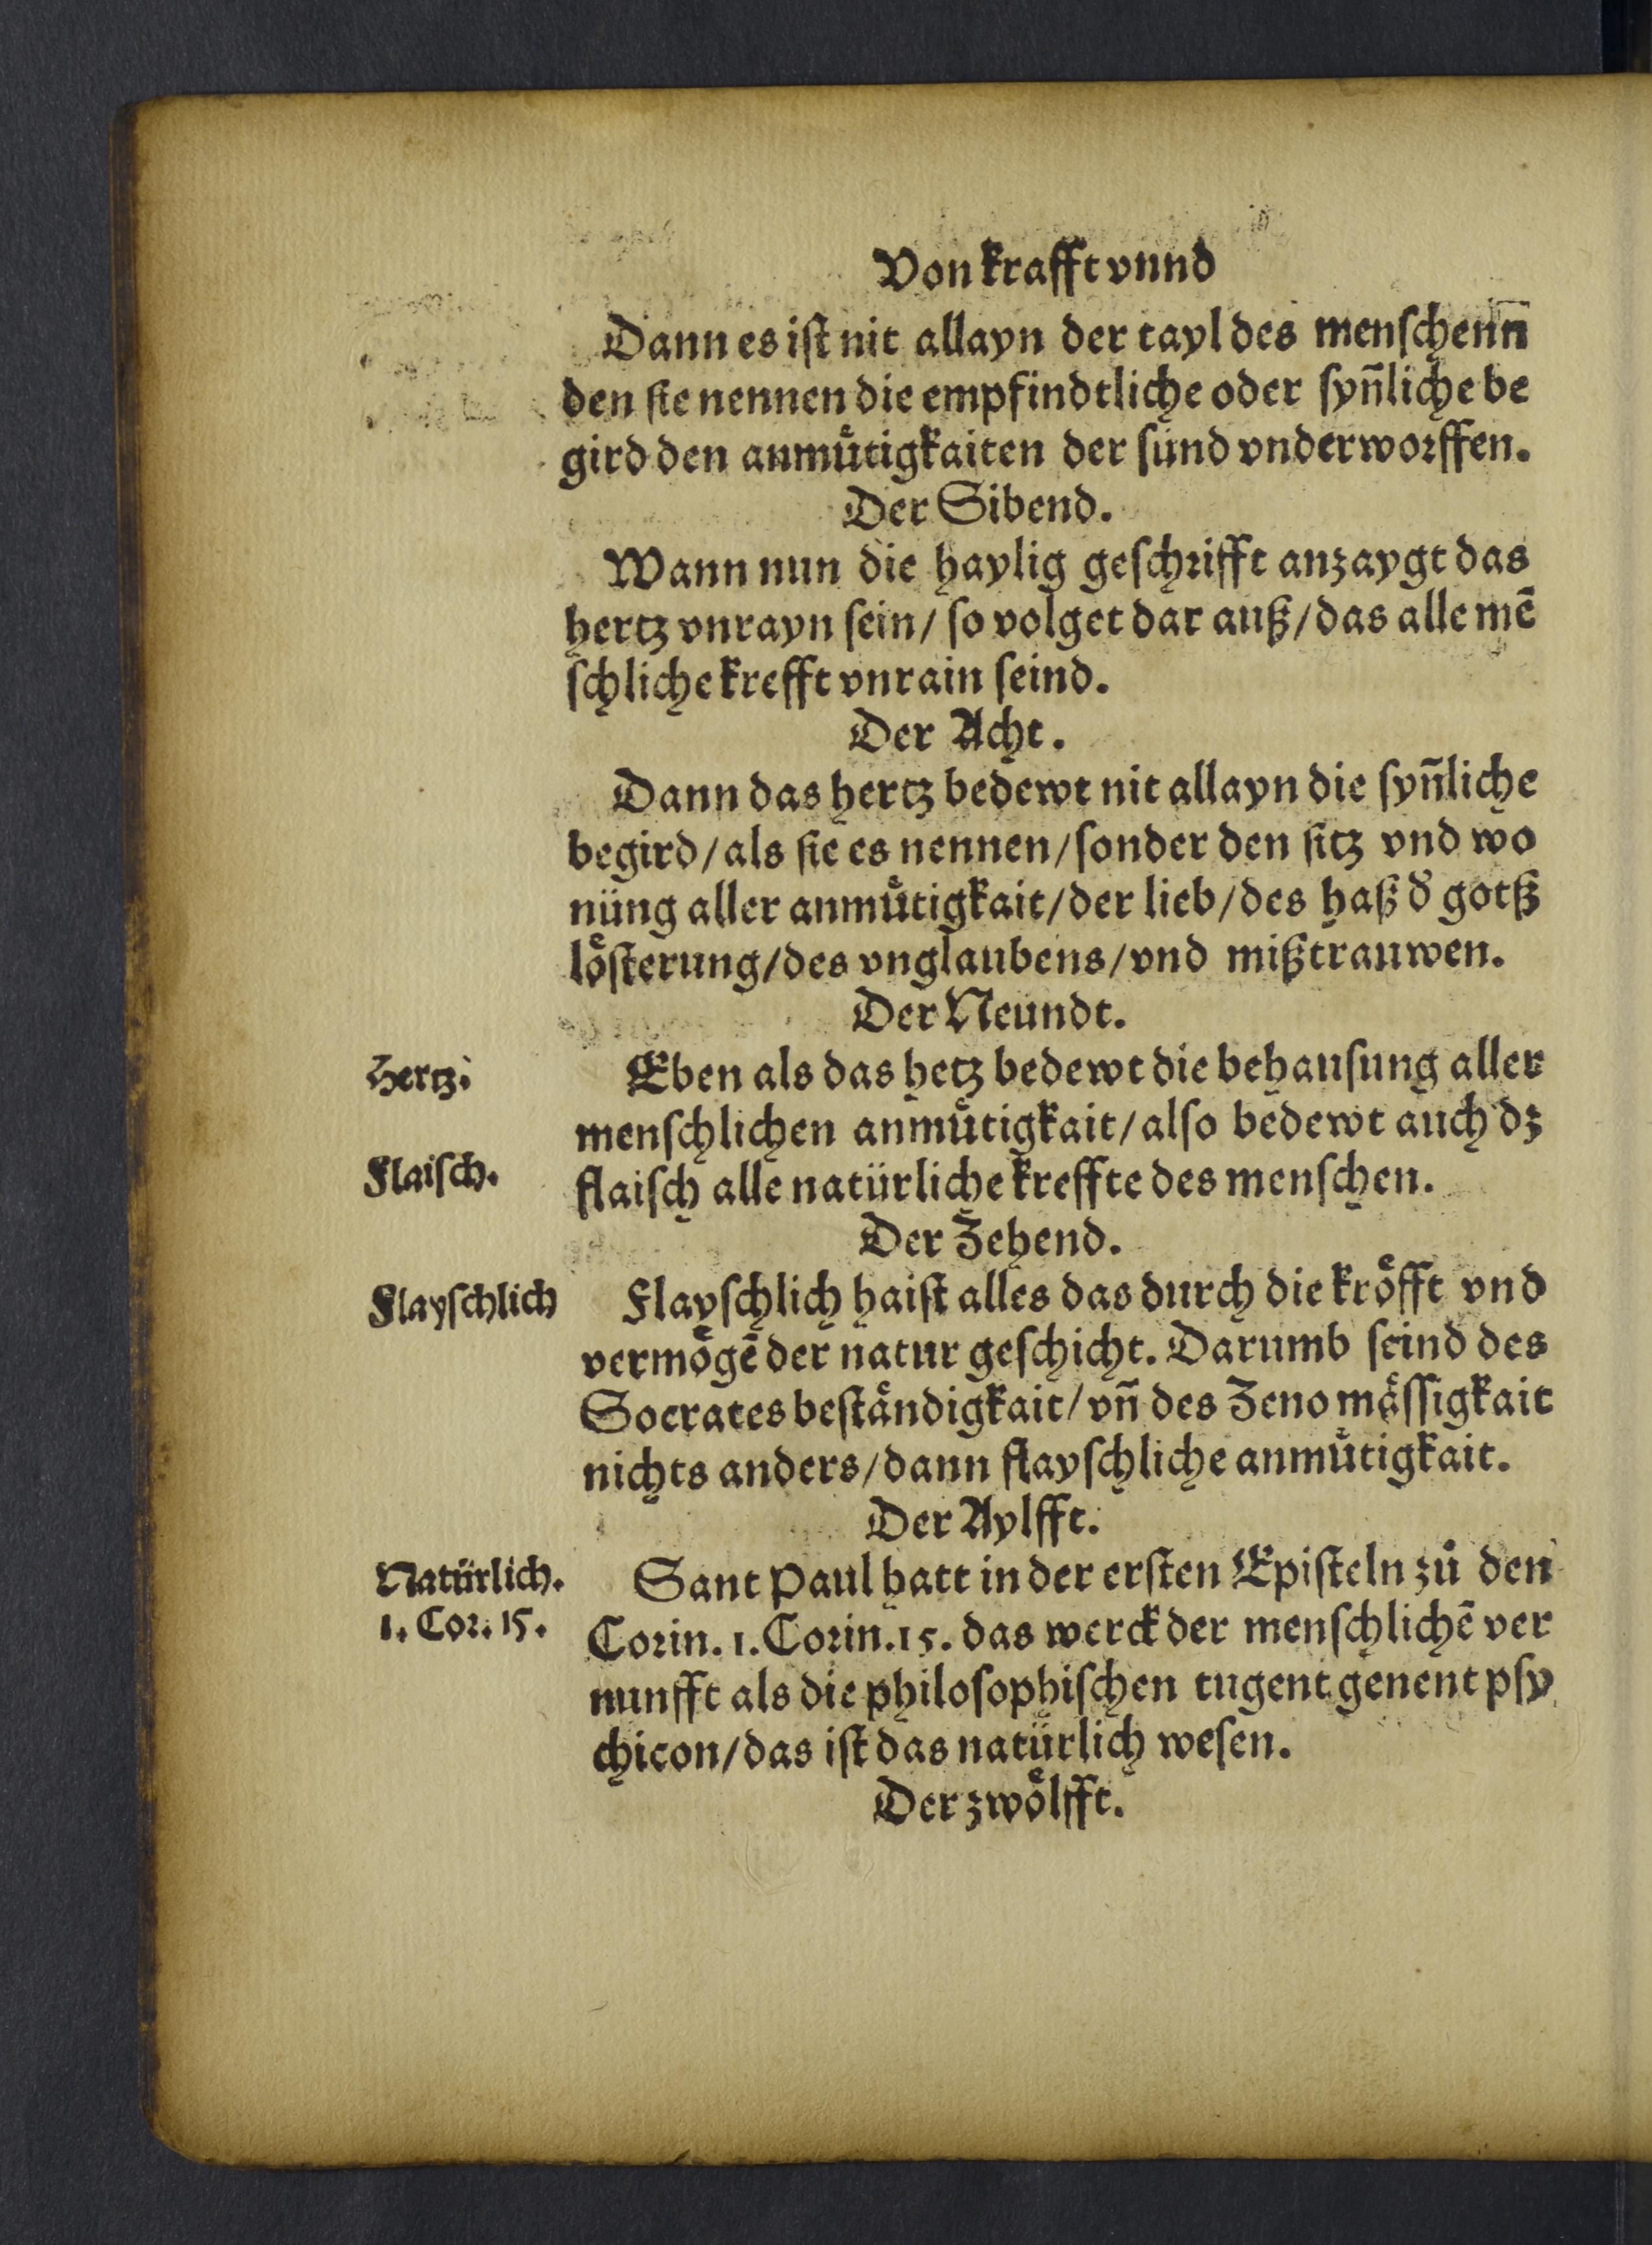 Von krafft vnnd
Dann es iſt nit allayn der tayl des menſchenn
den ſie nennen die empfindtliche oder ſyn̄liche be
gird den anmuͤtigkaiten der ſünd vnderworffen.
Der Sibend.
Wann nun die haylig geſchrifft anzaygt das
hertz vnrayn ſein/ ſo volget dar auß/das alle mē
ſchliche krefft vnrain ſeind.
Der Acht.
Dann das hertz bedewt nit allayn die ſyn̄liche
begird/als ſie es nennen/ſonder den ſitz vnd wo
nüng aller anmuͤtigkait/der lieb/des haß d̕ gotß
loͤſterung/des vnglaubens/vnd mißtrauwen.
Der Neundt.
Hertz.
Eben als das hetz bedewt die behauſung aller
menſchlichen anmuͤtigkait/alſo bedewt auch dz
Flaiſch.
flaiſch alle natürliche kreffte des menſchen.
Der Zehend.
Flayſchlich
Flayſchlich haiſt alles das durch die kroͤfft vnd
vermoͤgē der natur geſchicht. Darumb ſeind des
Socrates beſtaͤndigkait/vn̄ des Zeno maͤſſigkait
nichts anders/dann flayſchliche anmuͤtigkait.
Der Aylfft.
Natürlich.
Sant Paul hatt in der erſten Epiſteln zů den
1. Cor. 15.
Corin. 1. Corin. 15. das werck der menſchlichē ver
nunfft als die philoſophiſchen tugent genent pſy
chicon/das iſt das natürlich weſen.
Der zwoͤlfft.